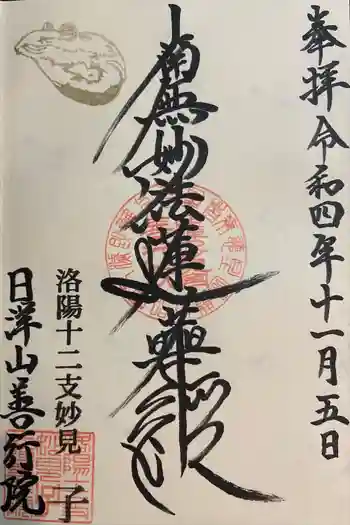 奉拝 令和四年十一月五日
南無妙法蓮華経
洛陽十二支妙見 子
日洋山善行院